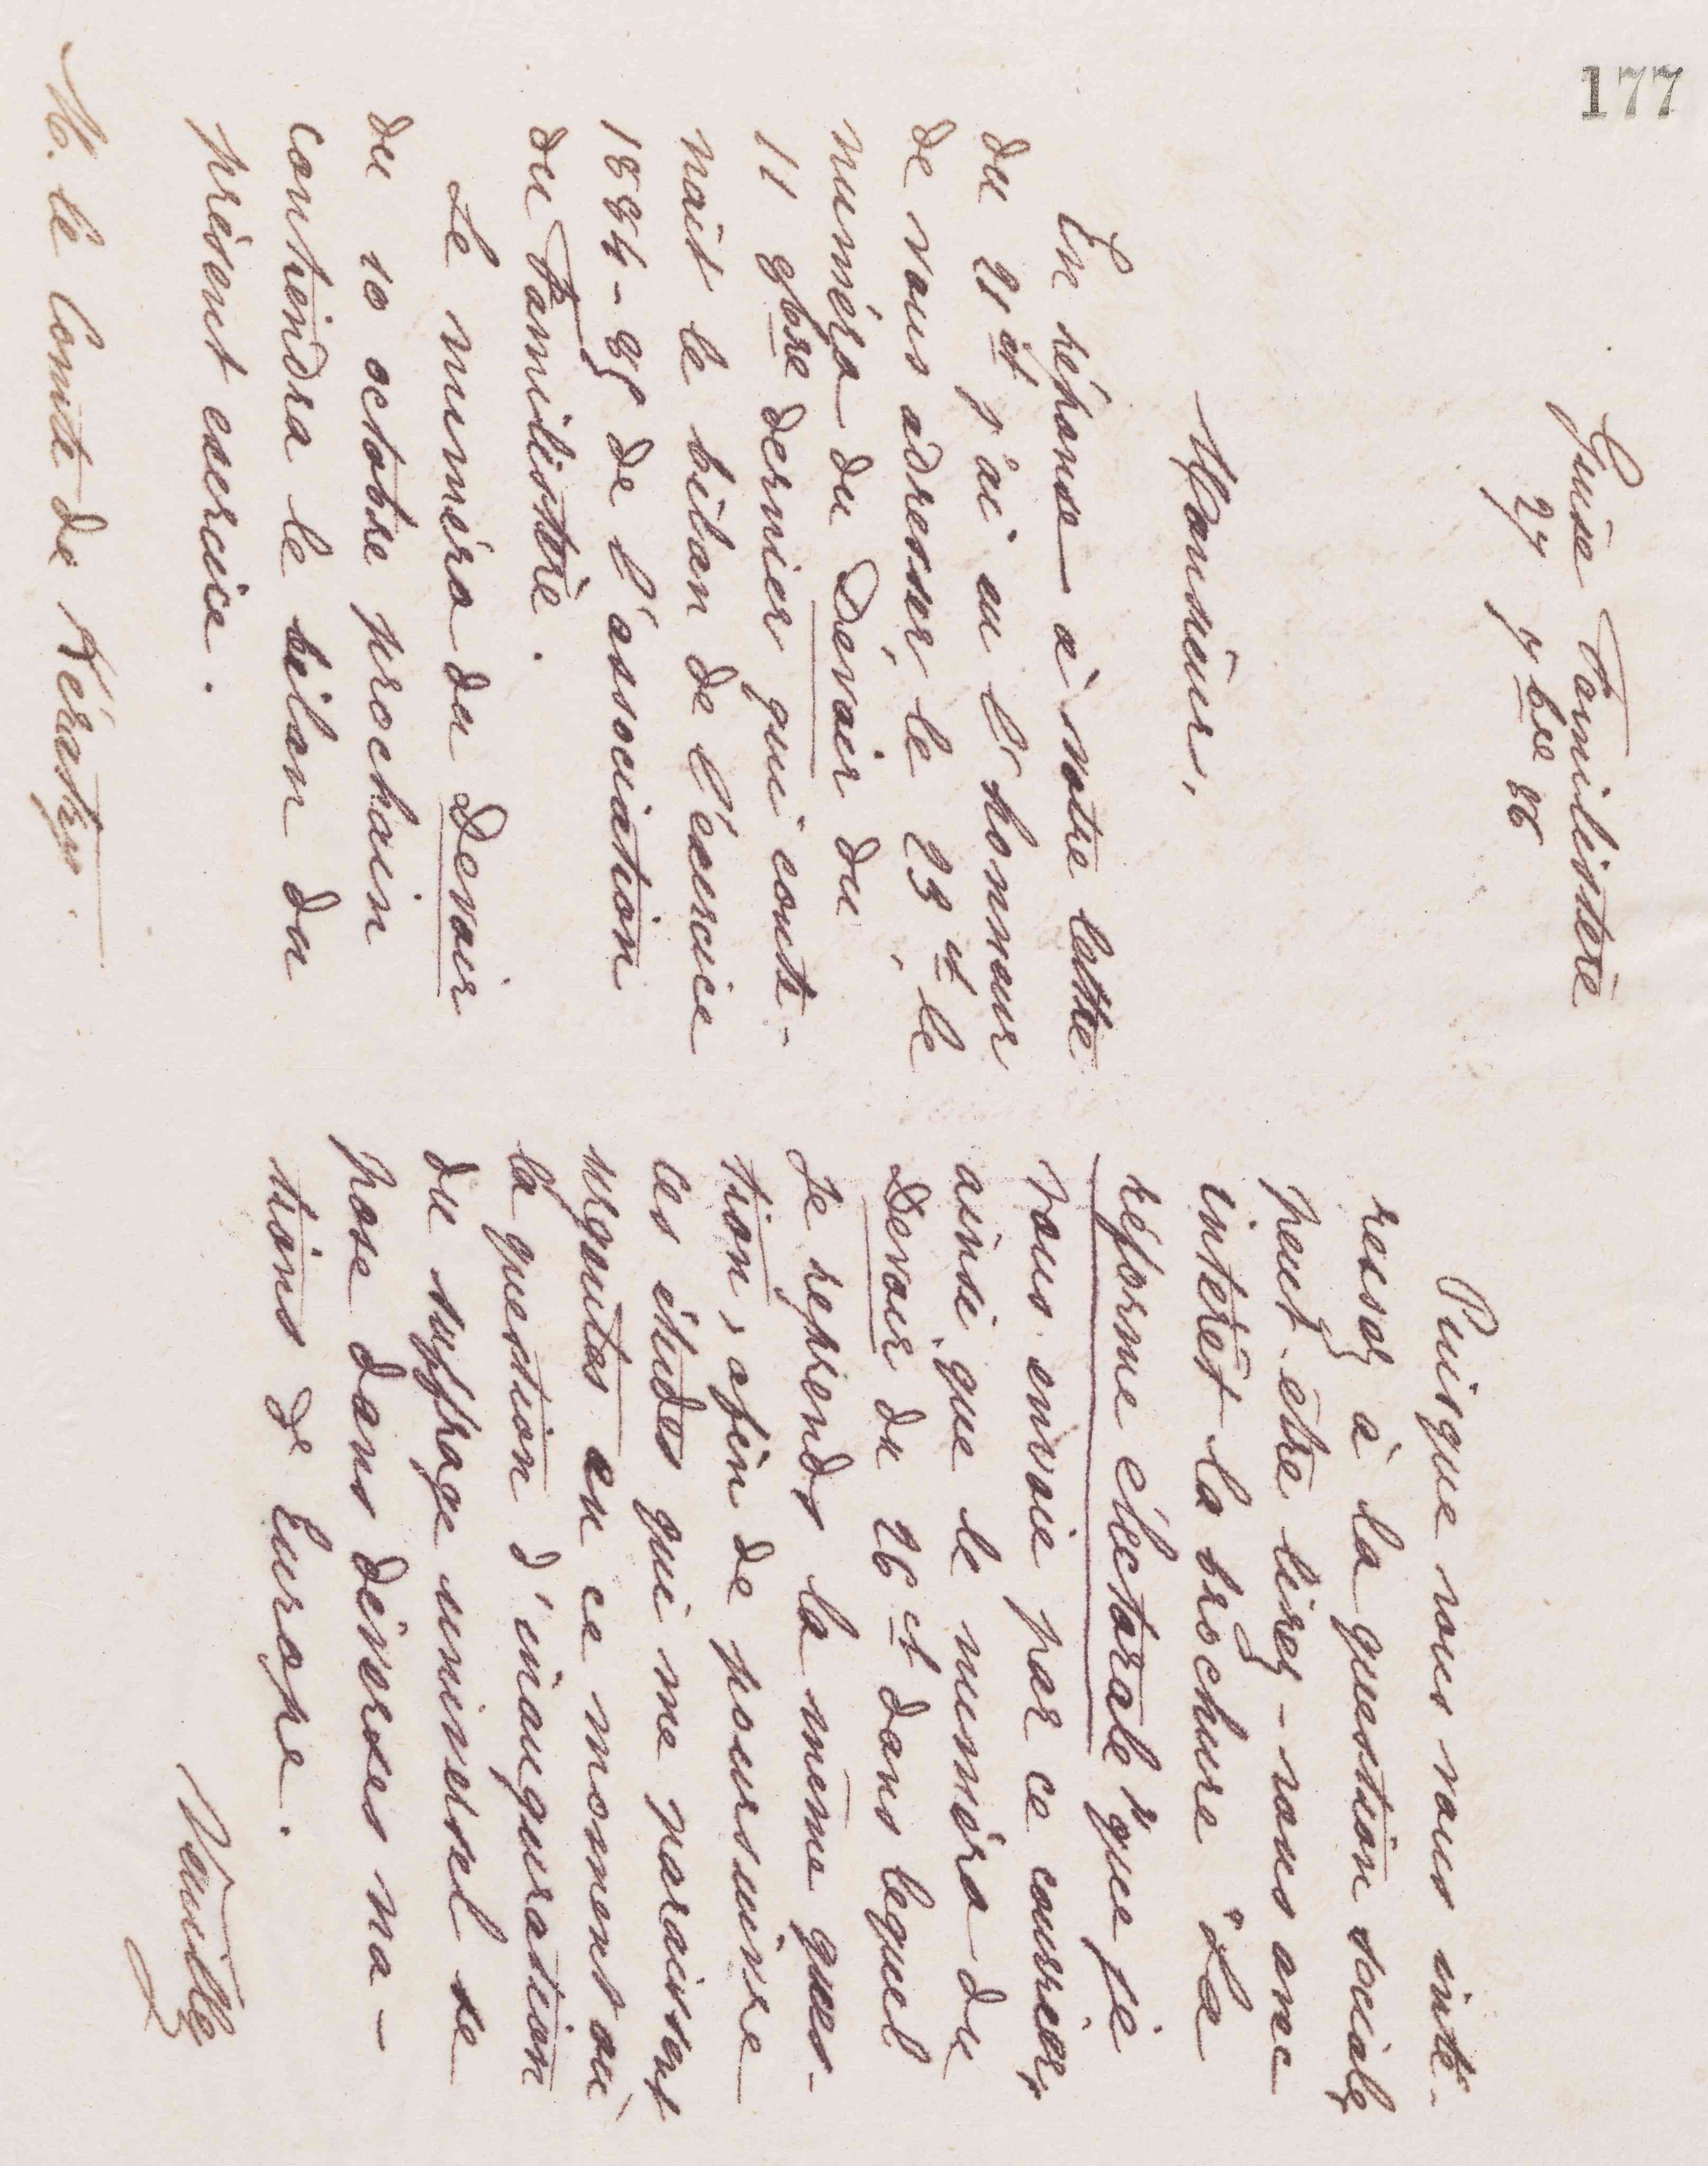 177
Guise Familistère
27 7bre 86
Monsieur,
En réponse à votre lettre
du 21 ct j'ai eu l'honneur
de vous adresser, le 23 ct, le
numéro du Devoir du
11 8bre dernier qui conte-
nait le bilan de l'exercice
1884-85 de l'association
du Familistère.
Le numéro du Devoir
du 10 octobre prochain
contiendra le bilan du
présent exercice.
M. le Comte de Kératry.
Puisque vous vous inté-
ressez à la question sociale,
peut-être lirez-vous avec
intérêt la brochure "La
réforme électorale" que je
vous envoie par ce courrier,
ainsi que le numéro du
Devoir du 26 ct dans lequel
je reprends la même ques-
tion, afin de poursuivre
les études qui me paraissent
urgentes en ce moment où
la question d'inauguration
du suffrage universel se
pose dans diverses na-
tions de Europe.
Veuillez